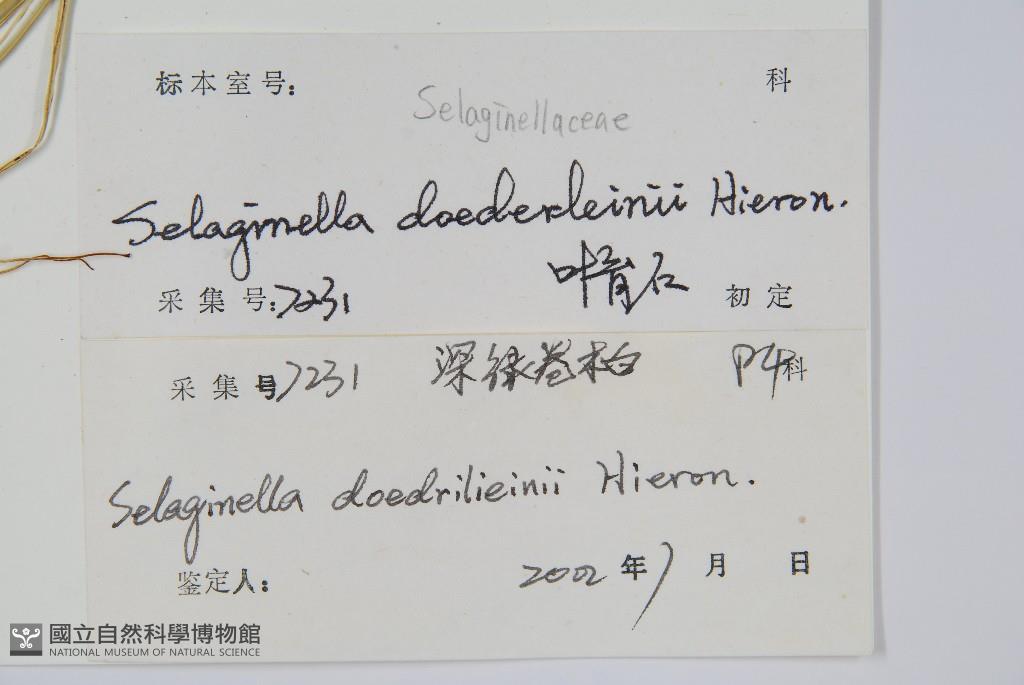 标本室号: 科
Selaginellaceae
Selaginella doederleinii Hieron.
采集号:7231 叶育石 初定
采集号7231 深绿卷柏 P4科
Selaginella doedrilieinii Hieron.
鉴定人: 2002年7月 日
國立自然科學博物館
NATIONAL MUSEUM OF NATURAL SCIENCE